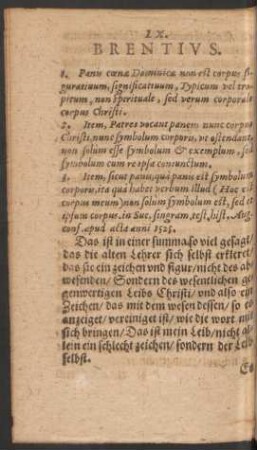 LX.
BRENTIVS.
1. Panis cœnæ Dominicæ non est corpus fi-
guratiuum, significatiuum, Typicum vel tro-
picum, non spirituale, sed verum corporale
corpus Christi.
2. Item, Patres vocant panem nunc corpus
Christi, nunc symbolum corporis, vt ostendant
non solum esse symbolum & exemplum, sed
symbolum cum re ipsa coniunctum.
3. Item, sicut panis, qui panis est symbolum
corporis, ita quà habet verbum illud (Hoc est
corpus meum) non solum symbolum est, sed et
ipsum corpus. in Suc. singram. test. hist. Aug.
conf. apud acta anni 1525.
Das ist in einer summa so viel gesagt/
das die alten Lehrer sich selbst erkleret/
das sie ein zeichen vnd figur/nicht des ab-
wesenden/ Sondern des wesentlichen ge-
genwertigen Leibs Christi/ vnd also ein
Zeichen/ das mit dem wesen dessen/ so es
anzeiget/ vereiniget ist/ wie die wort mit
sich bringen/ Das ist mein Leib/ nicht al-
lein ein schlecht zeichen/ sondern der Leib
selbst.